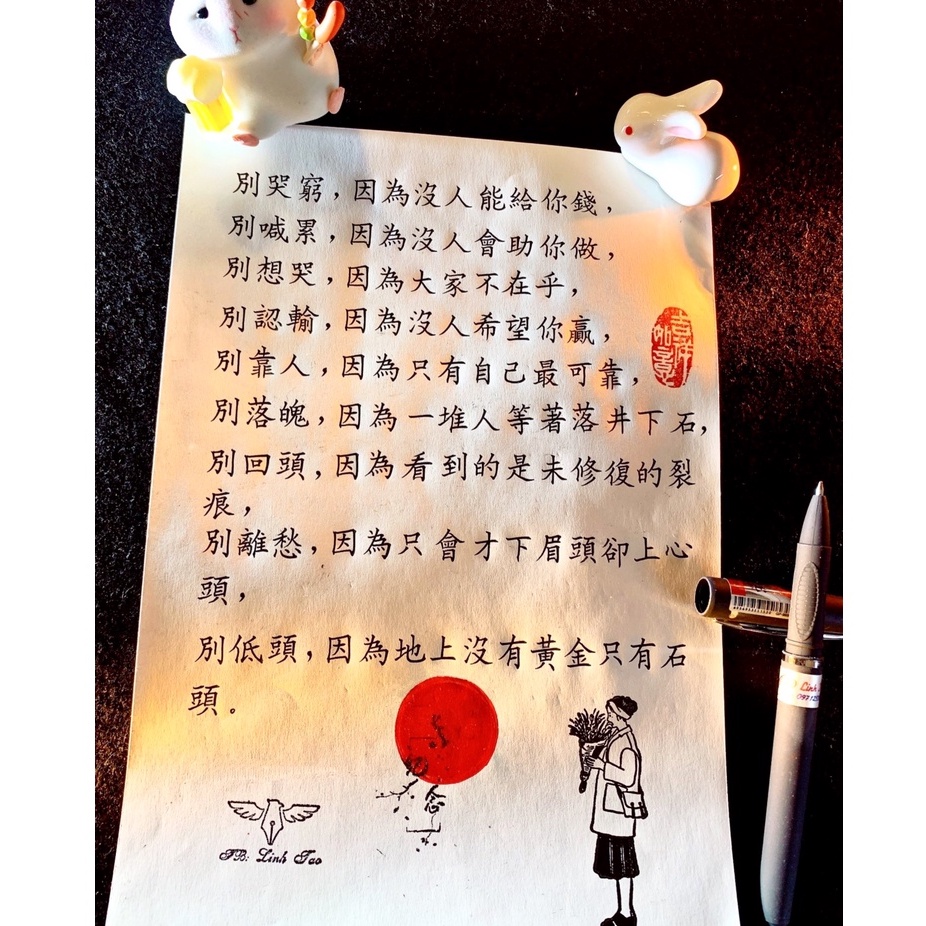 別哭窮，因為沒人能給你錢，
別喊累，因為沒人會助你做，
別想哭，因為大家不在乎，
別認輸，因為沒人希望你贏，
別靠人，因為只有自己最可靠，
別落魄，因為一堆人等著落井下石，
別回頭，因為看到的是未修復的裂
痕，
別離愁，因為只會才下眉頭卻上心
頭，
別低頭，因為地上沒有黃金只有石
頭。
吉祥
如意
念
FB: Linh Tao
Linh